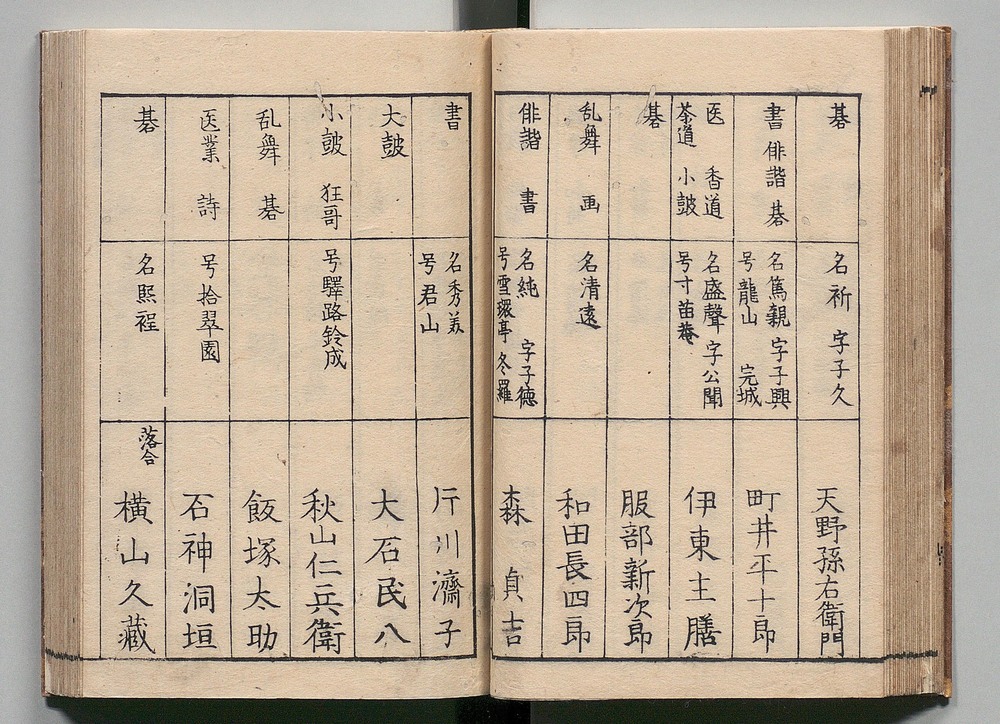 碁
名祈 字子久
天野孫右衛門
書 俳諧 碁
名篤親 字子興
号龍山 完城
町井平十郎
医 香道
茶道 小鼓
名盛聲 字公聞
号寸苗菴
伊東主膳
碁
服部新次郎
乱舞 画
名清遠
和田長四郎
俳諧 書
名純 字子徳
号雪環亭 冬羅
森 貞吉
書
名秀美
号君山
斤川濤子
大鼓
大石民八
小鼓 狂哥
号驛路鈴成
秋山仁兵衛
乱舞 碁
飯塚太助
医業 詩
号拾翠園
石神洞垣
碁
名熙裎
落合
横山久藏